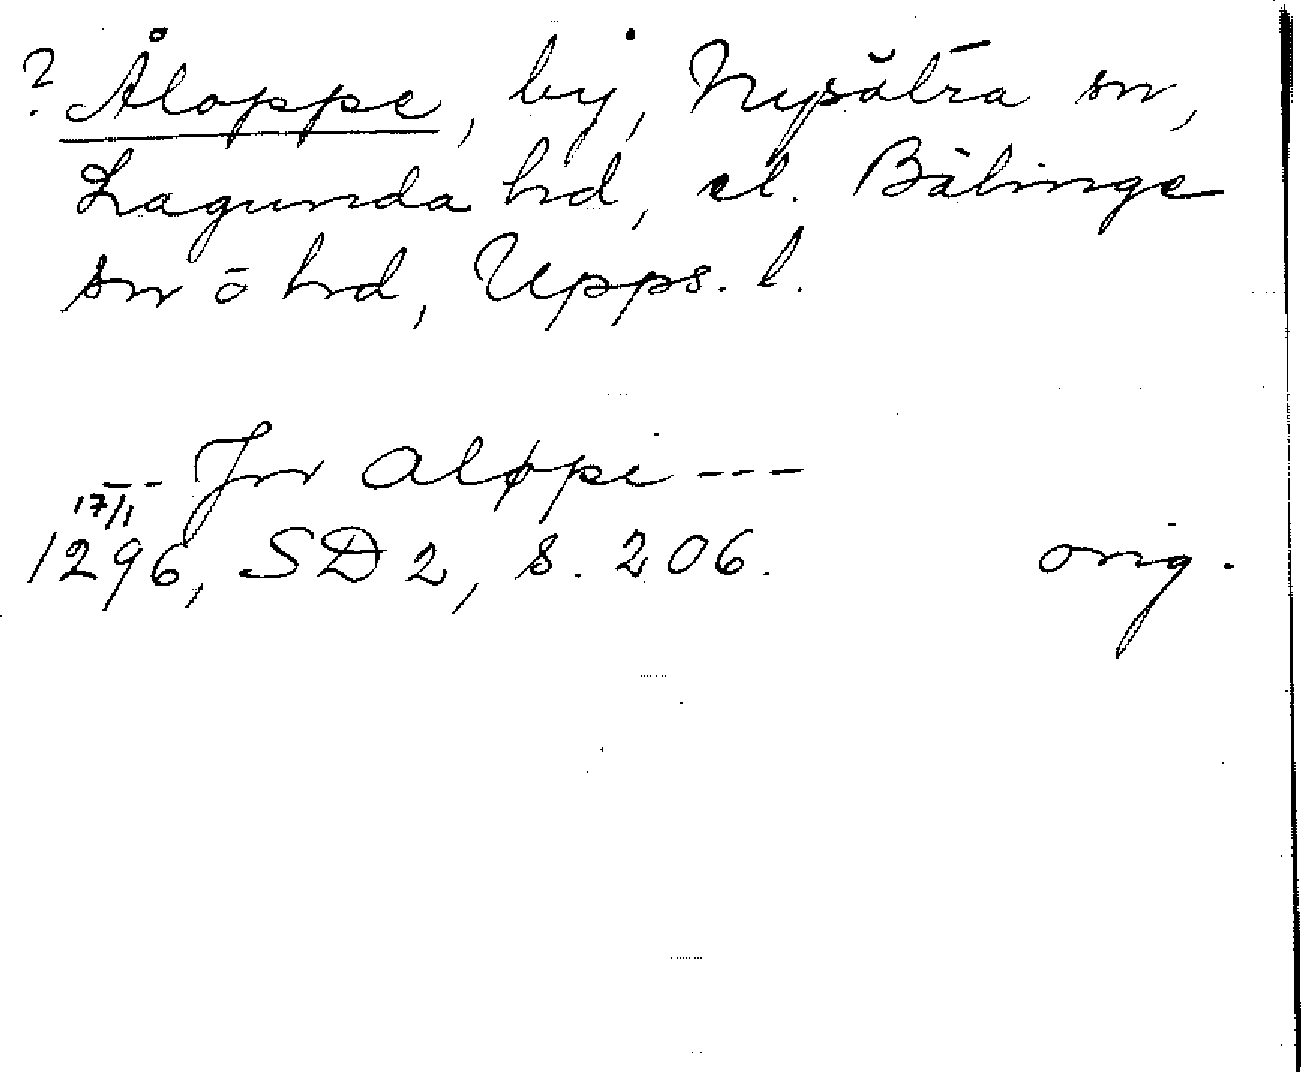 ? Åloppe, by, Nysätra sn,
Lagunda hd, el. Bälinge
sn o hd, Upps. l.
--- Jn Aløpe ---
17/1
1296, SD 2, s. 206. orig.